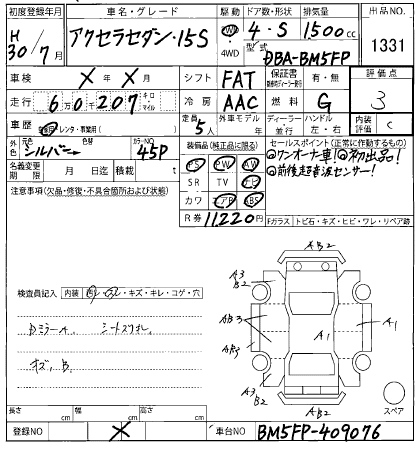 初度登録年月 車名・グレード 駆動 ドア数・形状 排気量 出品NO.
H 30/7月 アクセラセダン・15S 2WD 4WD 4・S 1500cc 1331
型式 DBA-BM5FP
車検 X年X月 シフト FAT 保証書 有・無 評価点
走行 6万0千207 キロ・マイル 冷房 AAC 燃料 G 3
車歴 自家用・レンタ・事業用( ) 定員 5人 外車モデル年 ディーラー・並行 ハンドル 左・右 内装評価 C
外色 元色 シルバー 色替 カラーNO. 45P 装備品(純正品に限る) セールスポイント(正常に作動するもの)
名義変更期限 月 日迄 積載 t PS PW AW ◎ワンオーナー車!◎初出品!
注意事項(欠品・修復・不具合箇所および状態) SR TV ナビ ◎前後超音波センサー!
カワ エアB ABS
R券 11,220円 Fガラス トビ石・キズ・ヒビ・ワレ・リペア跡
AB2
A3 B2 A3 B2
検査員記入 内装 キズ・キレ・コゲ・穴
AB3 A1 A1
DミラーA シートスリキレ
AB3
キズ,B
A3 B2 A3 B2
AB2
スペア
長さ cm 幅 cm 高さ cm
登録NO X 車台NO BM5FP-409076